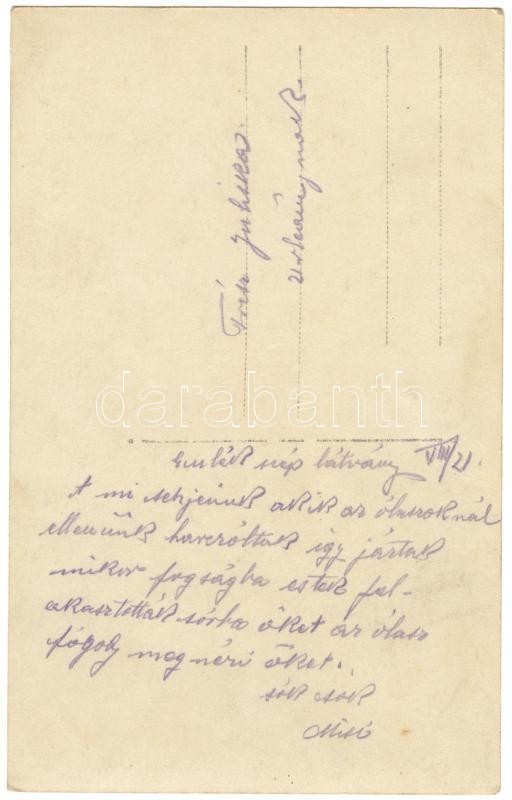 Fresz Juliska
Urleánynak
darabanth
Emlék szép látvány VIII/21.
A mi csehjeink akik az ólaszoknál
ellenünk harczóltak így jártak
mikor fogságba estek fel-
akasztották sórba őket az ólasz
fógoly megnézi őket.
sók csók
Misi